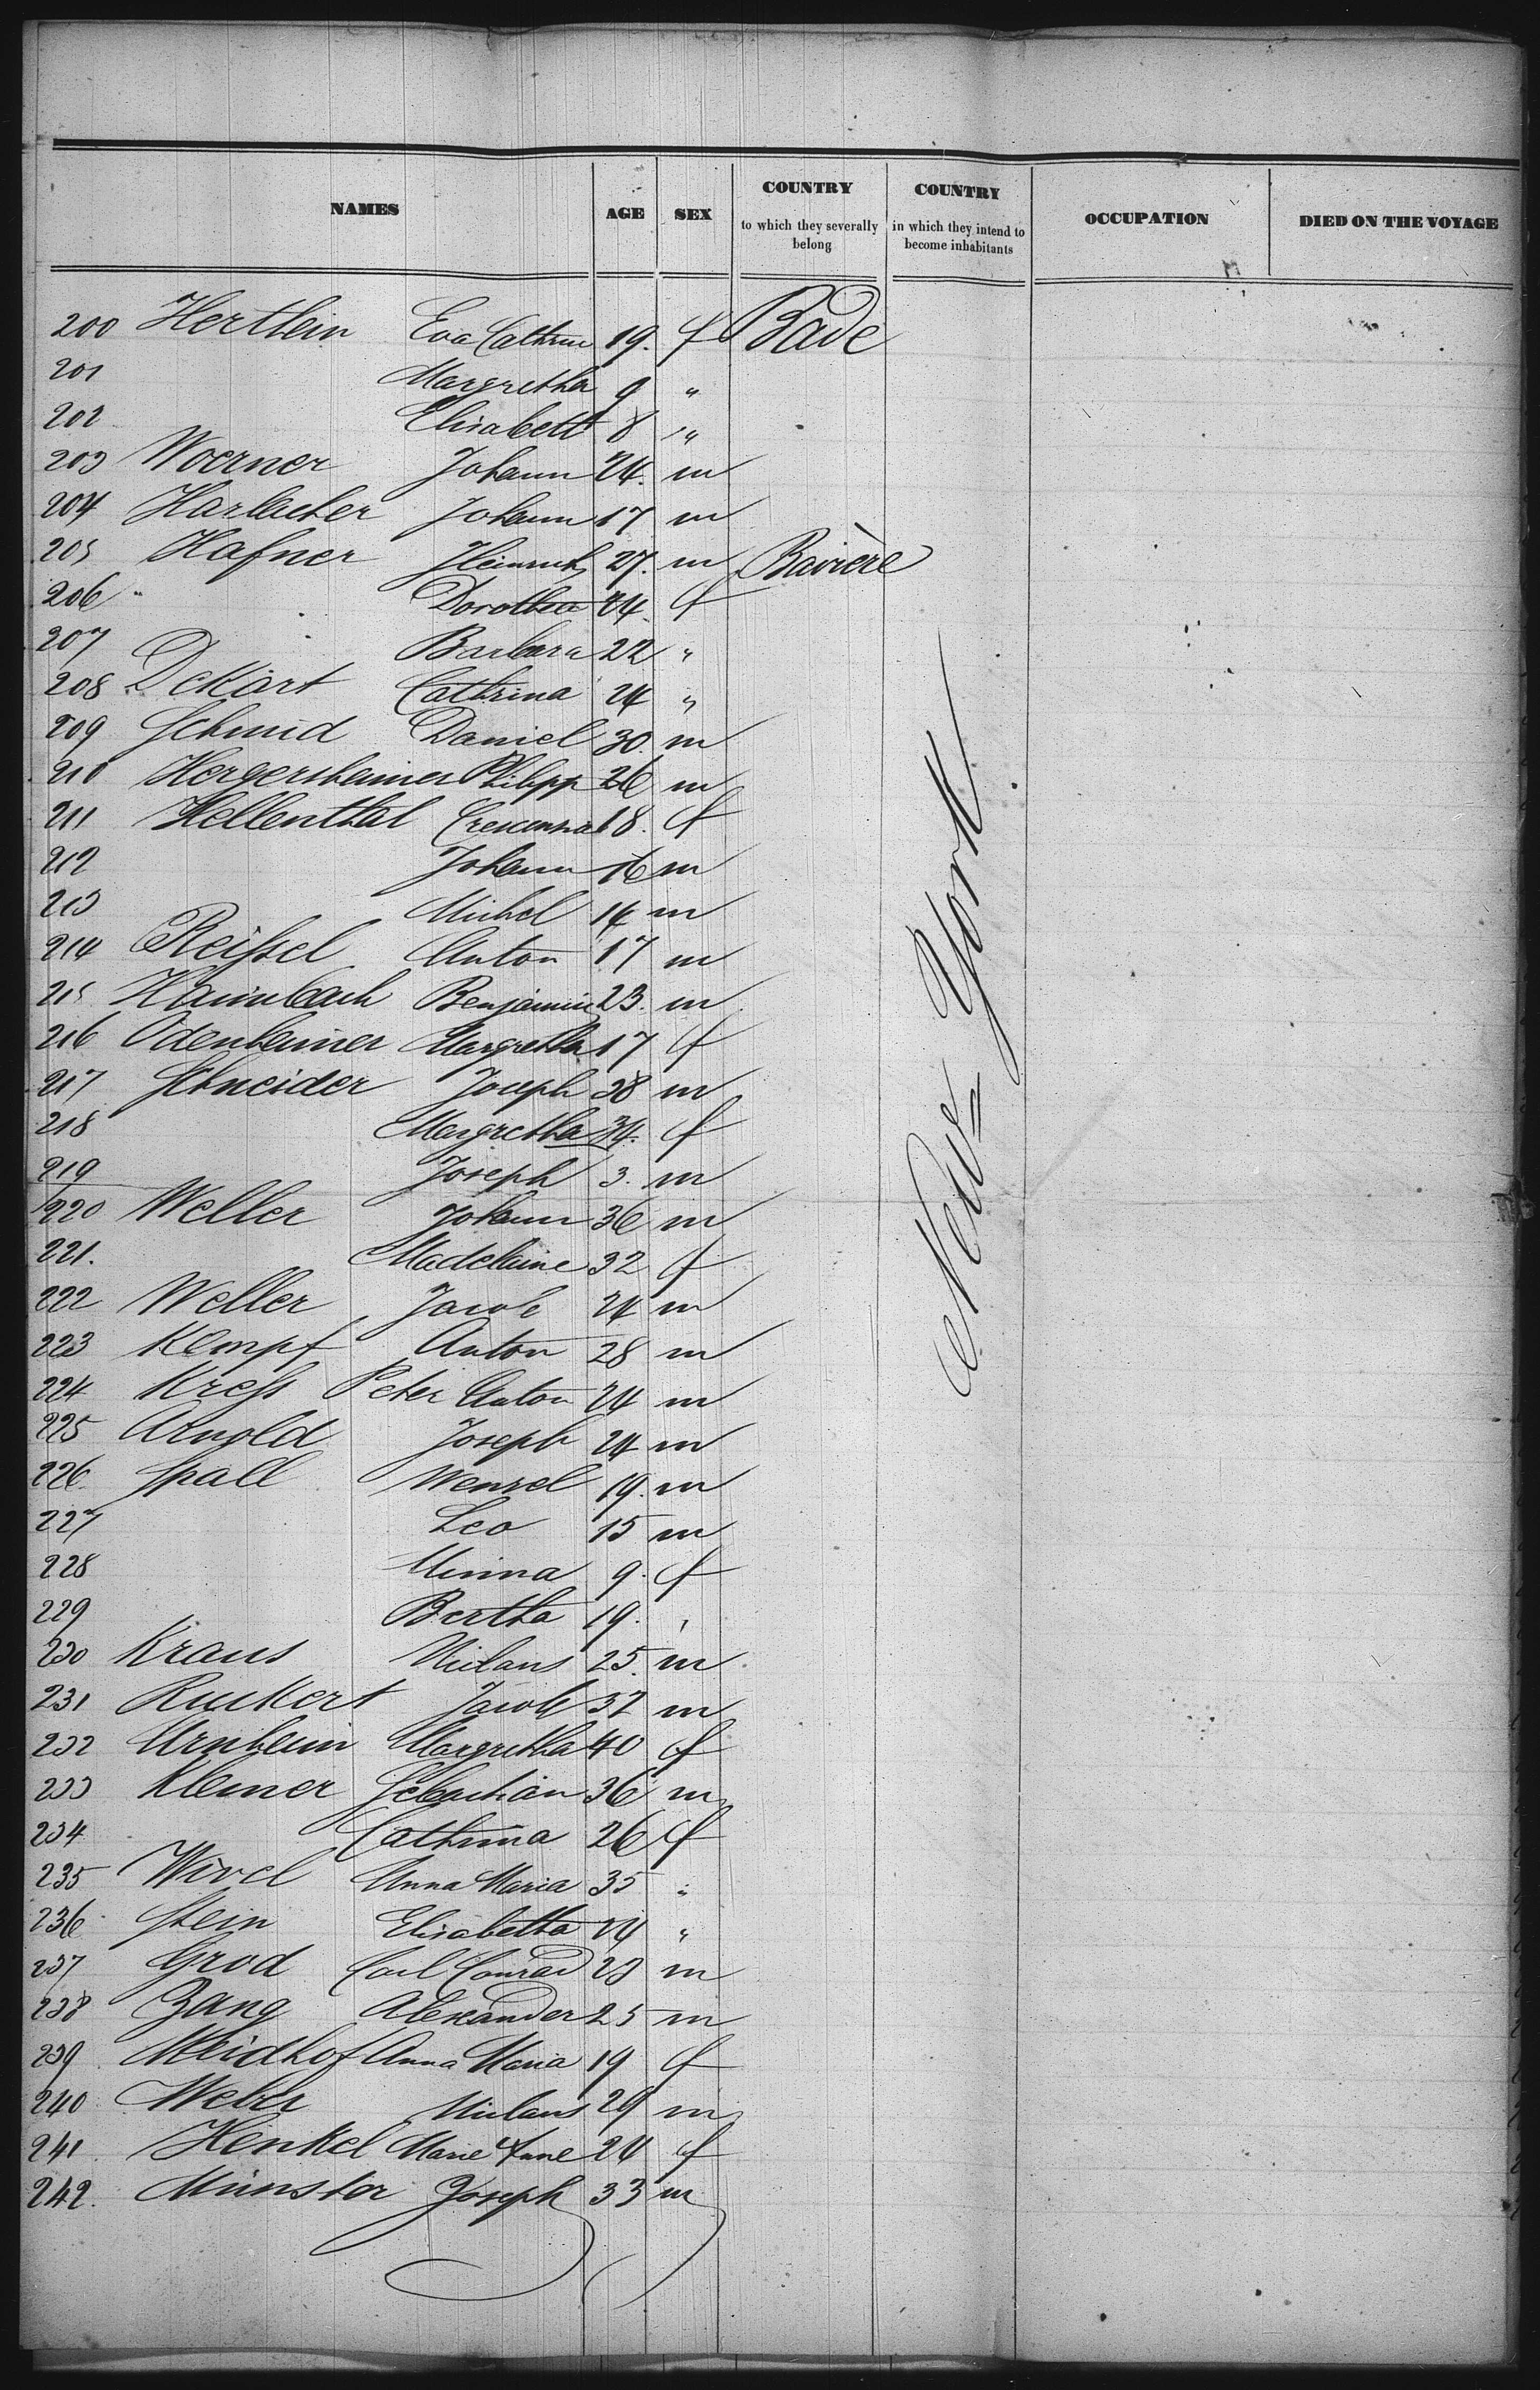 NAMES AGE SEX COUNTRY to which they severally belong COUNTRY in which they intend to become inhabitants OCCUPATION DIED ON THE VOYAGE
200 Herthein Eva Cathrine 19. f Bade
201 Margretha 9 "
202 Elisabett 8 "
203 Woerner Johann 24. m
204 Harbacher Johann 17 m
205 Hafner Heinrich 27. m Bavière
206 " Dorothea 24. f
207 Barbara 22 "
208 Dekart Cathrina 24 "
209 Schmid Daniel 30. m
210 Hergersheimer Philipp 26 m
211 Hellenthal 18. f
212 Johann 16 m
213 Michel 14 m
214 Reissel Anton 17 m
215 Haimbach Benjamin 23. m
216 Odenheimer Margretha 17 f
217 Schneider Joseph 38 m
218 Margretha 34. f
219 Joseph 3. m
220 Weller Johann 36 m
221. Madelaine 32 f
222 Weller Jacob 24 m
223 Kempf Anton 28 m
224 Kress Peter Anton 24 m
225 Arnold Joseph 24 m
226 Spall Wenzel 19. m
227 Leo 15 m
228 Minna 9. f
229 Bertha 19. "
230 Kraus Niclaus 25. m
231 Ruckert Jacob 32 m
232 Arnheim Margretha 40 f
233 Klemer Sebastian 36 m
234 Cathrina 26 f
235 Anna Maria 35 "
236 Stein Elisabetha 24 "
237 Grod Carl Conrad 23 m
238 Zang Alexander 25 m
239 Meidhof Anna Maria 19 f
240 Weber Niclaus 29 m
241 Henkel Marie Anne 24 f
242. Münster Joseph 33 m
New=York